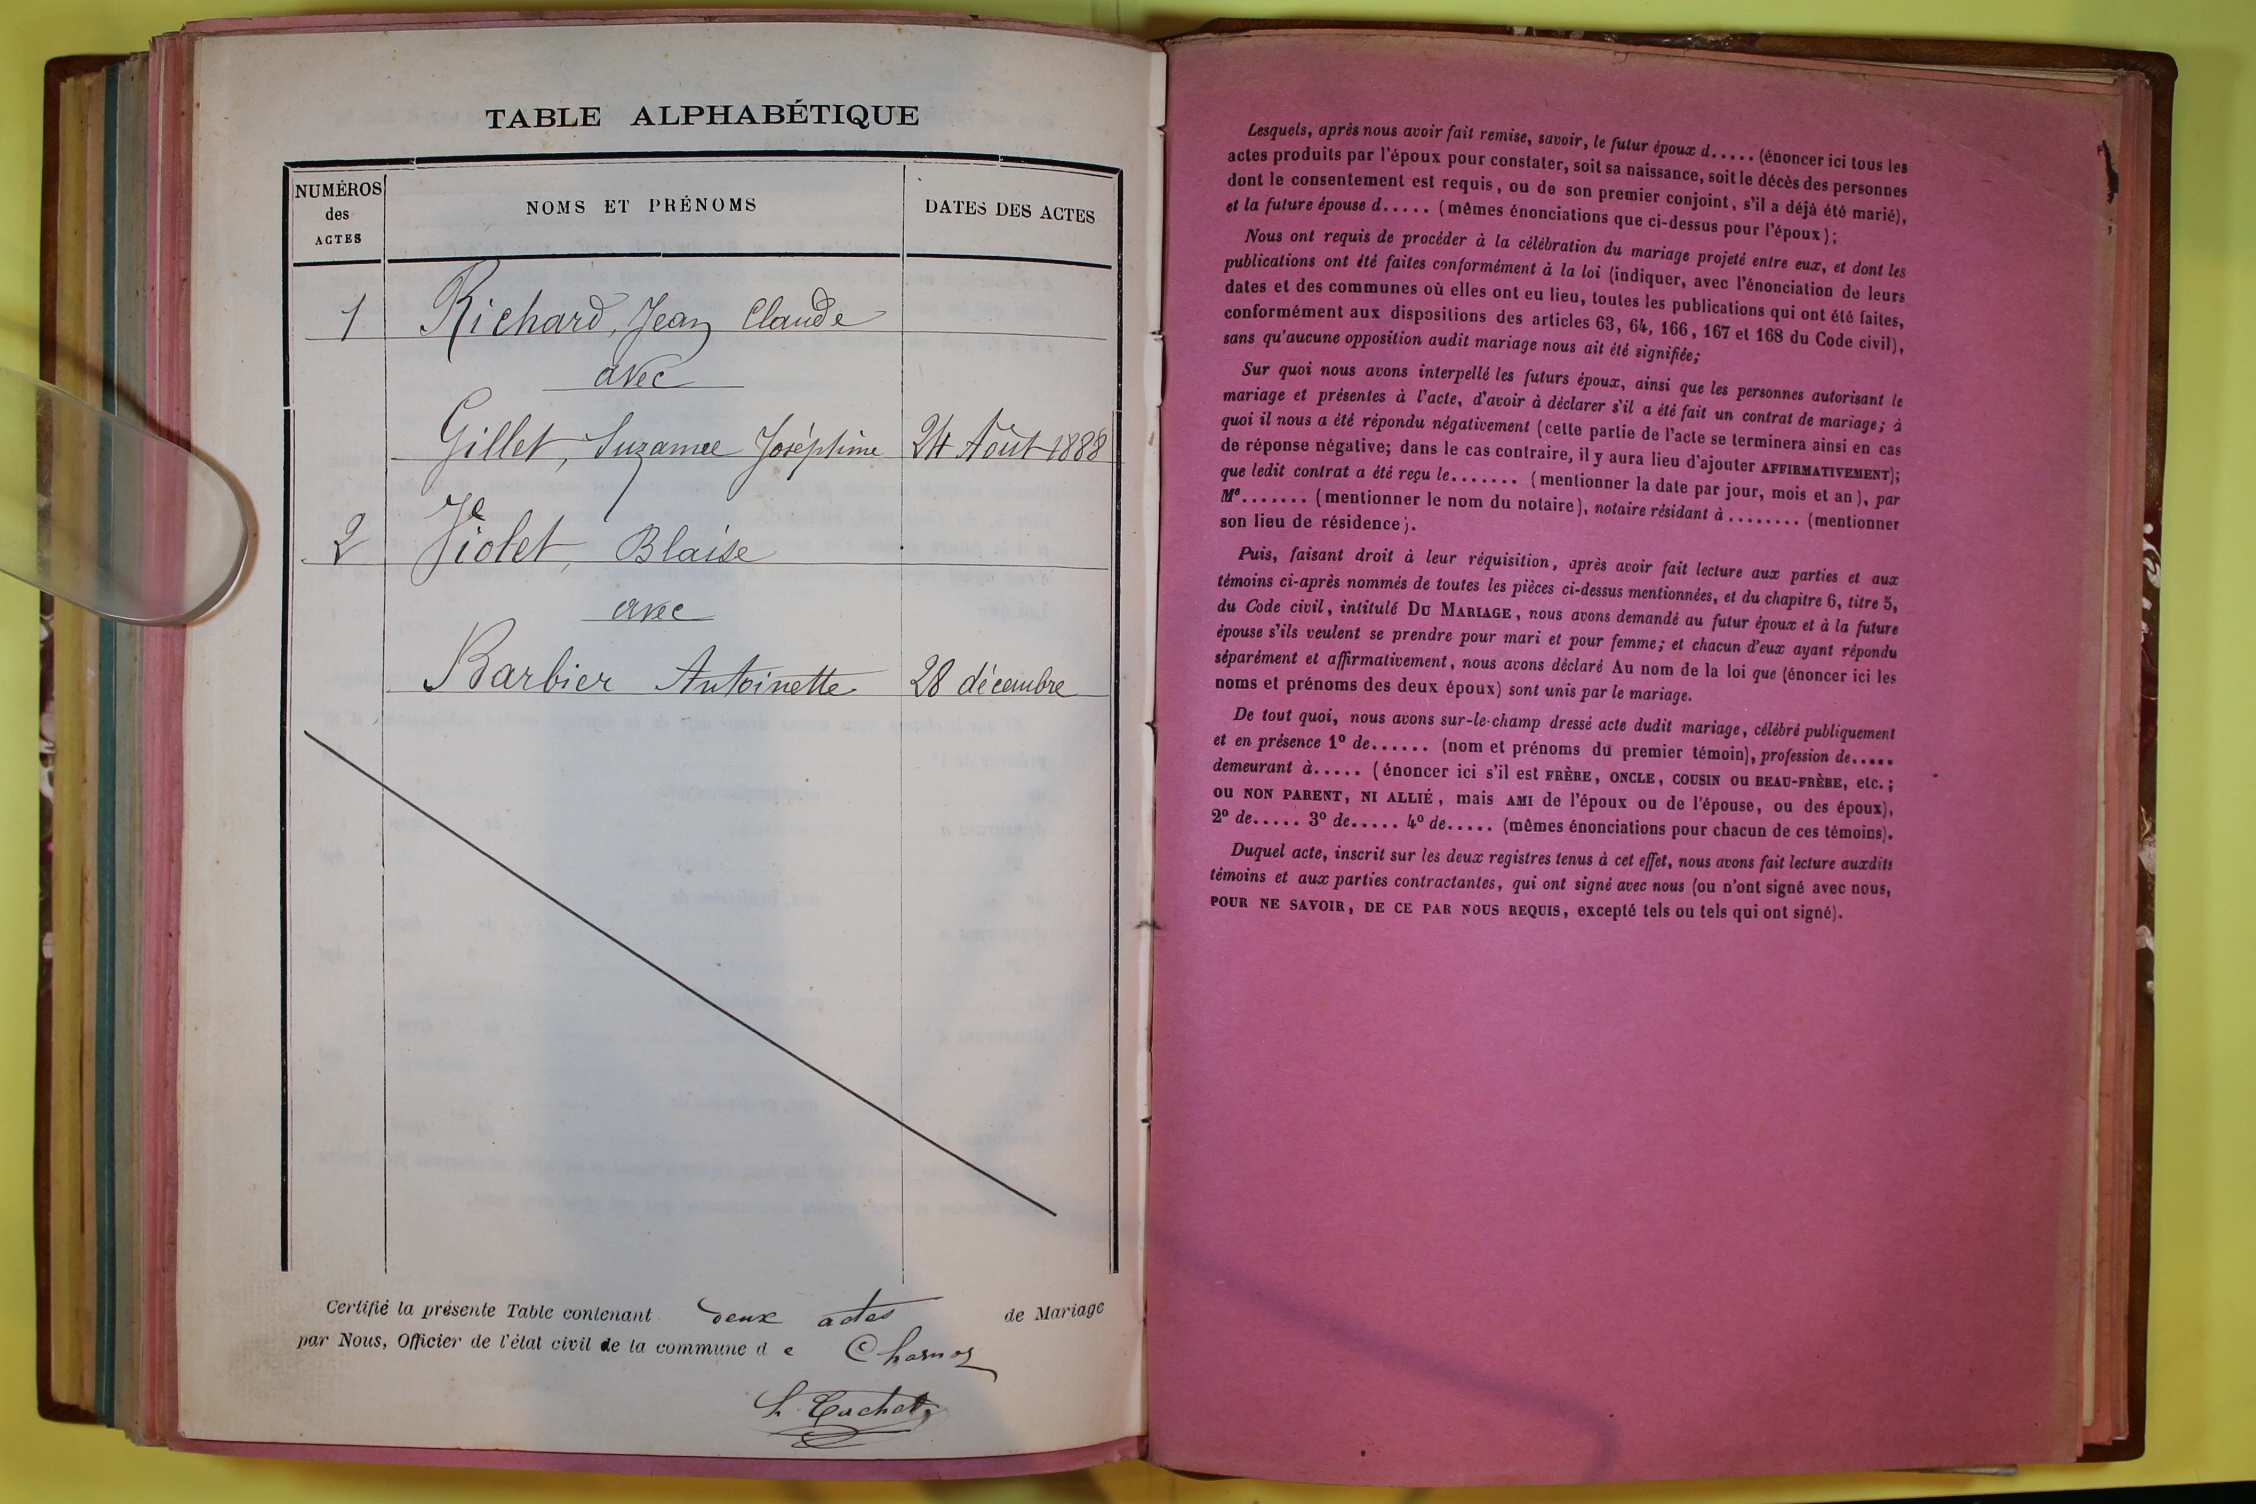 TABLE ALPHABÉTIQUE
NUMÉROS des ACTES
NOMS ET PRÉNOMS
DATES DES ACTES
1 Richard, Jean Claude
avec
Gillet, Suzanne Joséphine 24 Août 1888
2 Violet, Blaise
avec
Barbier Antoinette 28 décembre
Certifié la présente Table contenant deux actes de Mariage
par Nous, Officier de l'état civil de la commune d e Charnoz
Lesquels, après nous avoir fait remise, savoir, le futur époux d..... (énoncer ici tous les
actes produits par l'époux pour constater, soit sa naissance, soit le décès des personnes
dont le consentement est requis, ou de son premier conjoint, s'il a déjà été marié),
et la future épouse d..... (mêmes énonciations que ci-dessus pour l'époux);
Nous ont requis de procéder à la célébration du mariage projeté entre eux, et dont les
publications ont été faites conformément à la loi (indiquer, avec l'énonciation de leurs
dates et des communes où elles ont eu lieu, toutes les publications qui ont été faites,
conformément aux dispositions des articles 63, 64, 166, 167 et 168 du Code civil),
sans qu'aucune opposition audit mariage nous ait été signifiée;
Sur quoi nous avons interpellé les futurs époux, ainsi que les personnes autorisant le
mariage et présentes à l'acte, d'avoir à déclarer s'il a été fait un contrat de mariage; à
quoi il nous a été répondu négativement (cette partie de l'acte se terminera ainsi en cas
de réponse négative; dans le cas contraire, il y aura lieu d'ajouter AFFIRMATIVEMENT);
que ledit contrat a été reçu le....... (mentionner la date par jour, mois et an), par
Me....... (mentionner le nom du notaire), notaire résidant à ........ (mentionner
son lieu de résidence).
Puis, faisant droit à leur réquisition, après avoir fait lecture aux parties et aux
témoins ci-après nommés de toutes les pièces ci-dessus mentionnées, et du chapitre 6, titre 5,
du Code civil, intitulé DU MARIAGE, nous avons demandé au futur époux et à la future
épouse s'ils veulent se prendre pour mari et pour femme; et chacun d'eux ayant répondu
séparément et affirmativement, nous avons déclaré Au nom de la loi que (énoncer ici les
noms et prénoms des deux époux) sont unis par le mariage.
De tout quoi, nous avons sur-le-champ dressé acte dudit mariage, célébré publiquement
et en présence 1º de...... (nom et prénoms du premier témoin), profession de.....
demeurant à..... (énoncer ici s'il est FRÈRE, ONCLE, COUSIN OU BEAU-FRÈRE, etc.;
OU NON PARENT, NI ALLIÉ, mais AMI de l'époux ou de l'épouse, ou des époux),
2º de..... 3º de..... 4º de..... (mêmes énonciations pour chacun de ces témoins).
Duquel acte, inscrit sur les deux registres tenus à cet effet, nous avons fait lecture auxdits
témoins et aux parties contractantes, qui ont signé avec nous (ou n'ont signé avec nous,
POUR NE SAVOIR, DE CE PAR NOUS REQUIS, excepté tels ou tels qui ont signé).